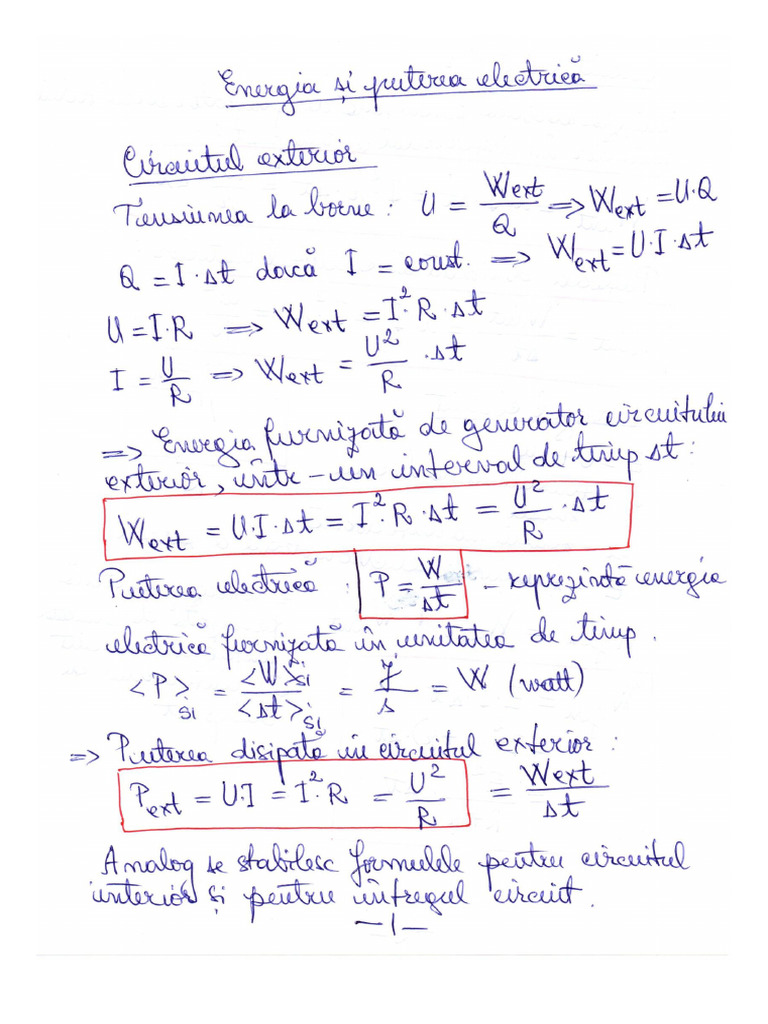 Energia și puterea electrică
Circuitul exterior
Tensiunea la borne: U = Wext/Q => Wext = U·Q
Q = I·Δt dacă I = const. => Wext = U·I·Δt
U = I·R => Wext = I²·R·Δt
I = U/R => Wext = U²/R ·Δt
=> Energia furnizată de generator circuitului
exterior, într-un interval de timp Δt:
Wext = U·I·Δt = I²·R·Δt = U²/R ·Δt
Puterea electrică: P = W/Δt - reprezintă energia
electrică furnizată în unitatea de timp.
<P>SI = <W>SI/<Δt>SI = J/s = W (watt)
=> Puterea disipată în circuitul exterior:
Pext = U·I = I²·R = U²/R = Wext/Δt
Analog se stabilesc formulele pentru circuitul
interior și pentru întregul circuit.
-1-